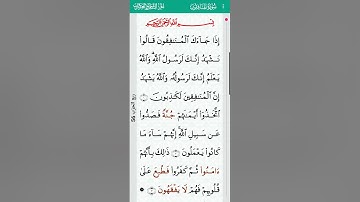 سُورَةُ المُنَافِقُون
بِسْمِ اللَّهِ الرَّحْمَٰنِ الرَّحِيمِ
إِذَا جَآءَكَ الْمُنَافِقُونَ قَالُوا
نَشْهَدُ إِنَّكَ لَرَسُولُ اللَّهِ وَاللَّهُ
يَعْلَمُ إِنَّكَ لَرَسُولُهُ وَاللَّهُ يَشْهَدُ
إِنَّ الْمُنَافِقِينَ لَكَاذِبُونَ ١
اتَّخَذُوا أَيْمَانَهُمْ جُنَّةً فَصَدُّوا
عَن سَبِيلِ اللَّهِ إِنَّهُمْ سَآءَ مَا
كَانُوا يَعْمَلُونَ ٢ ذَٰلِكَ بِأَنَّهُمْ
ءَامَنُوا ثُمَّ كَفَرُوا فَطُبِعَ عَلَىٰ
قُلُوبِهِمْ فَهُمْ لَا يَفْقَهُونَ ٣